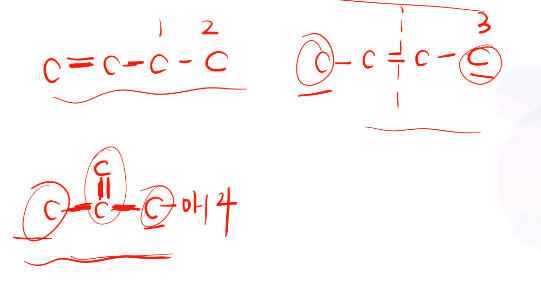 1 2
C=C-C-C
3
C-C=C-C
C
C-C-C- 4